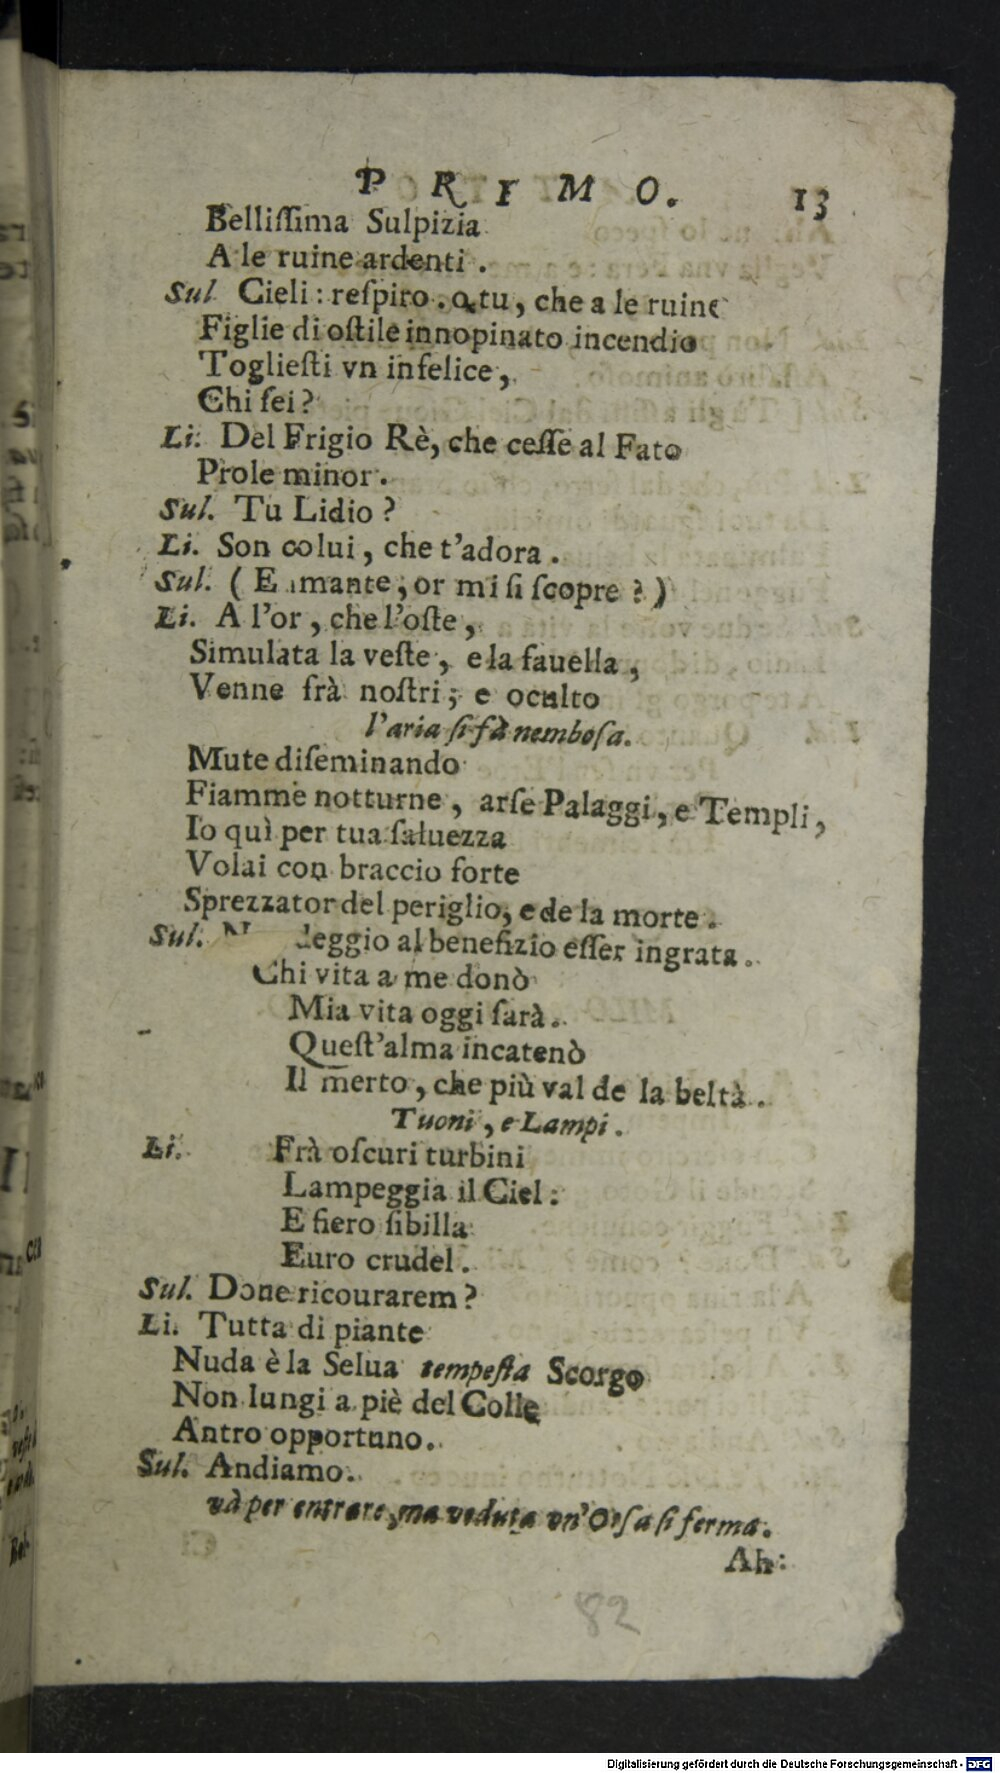 PRIMO. 13
Bellissima Sulpizia
A le ruine ardenti.
Sul Cieli: respiro. o tu, che a le ruine
Figlie di ostile innopinato incendio
Togliesti vn infelice,
Chi sei?
Li. Del Frigio Rè, che cesse al Fato
Prole minor.
Sul. Tu Lidio?
Li. Son colui, che t'adora.
Sul. (E amante, or mi si scopre?)
Li. A l'or, che l'oste,
Simulata la veste, e la fauella,
Venne frà nostri; e oculto
l'aria si fà nembosa.
Mute diseminando
Fiamme notturne, arse Palaggi, e Templi,
Io quì per tua saluezza
Volai con braccio forte
Sprezzator del periglio, e de la morte.
Sul. deggio al benefizio esser ingrata.
Chi vita a me donò
Mia vita oggi sarà.
Quest'alma incatenò
Il merto, che più val de la beltà.
Tuoni, e Lampi.
Li. Frà oscuri turbini
Lampeggia il Ciel:
E fiero sibilla
Euro crudel.
Sul. Doue ricourarem?
Li. Tutta di piante
Nuda è la Selua tempesta Scorgo
Non lungi a piè del Colle
Antro opportuno.
Sul. Andiamo.
và per entrare, ma veduta vn'Orsa si ferma.
Ah:
82
Digitalisierung gefördert durch die Deutsche Forschungsgemeinschaft - DFG